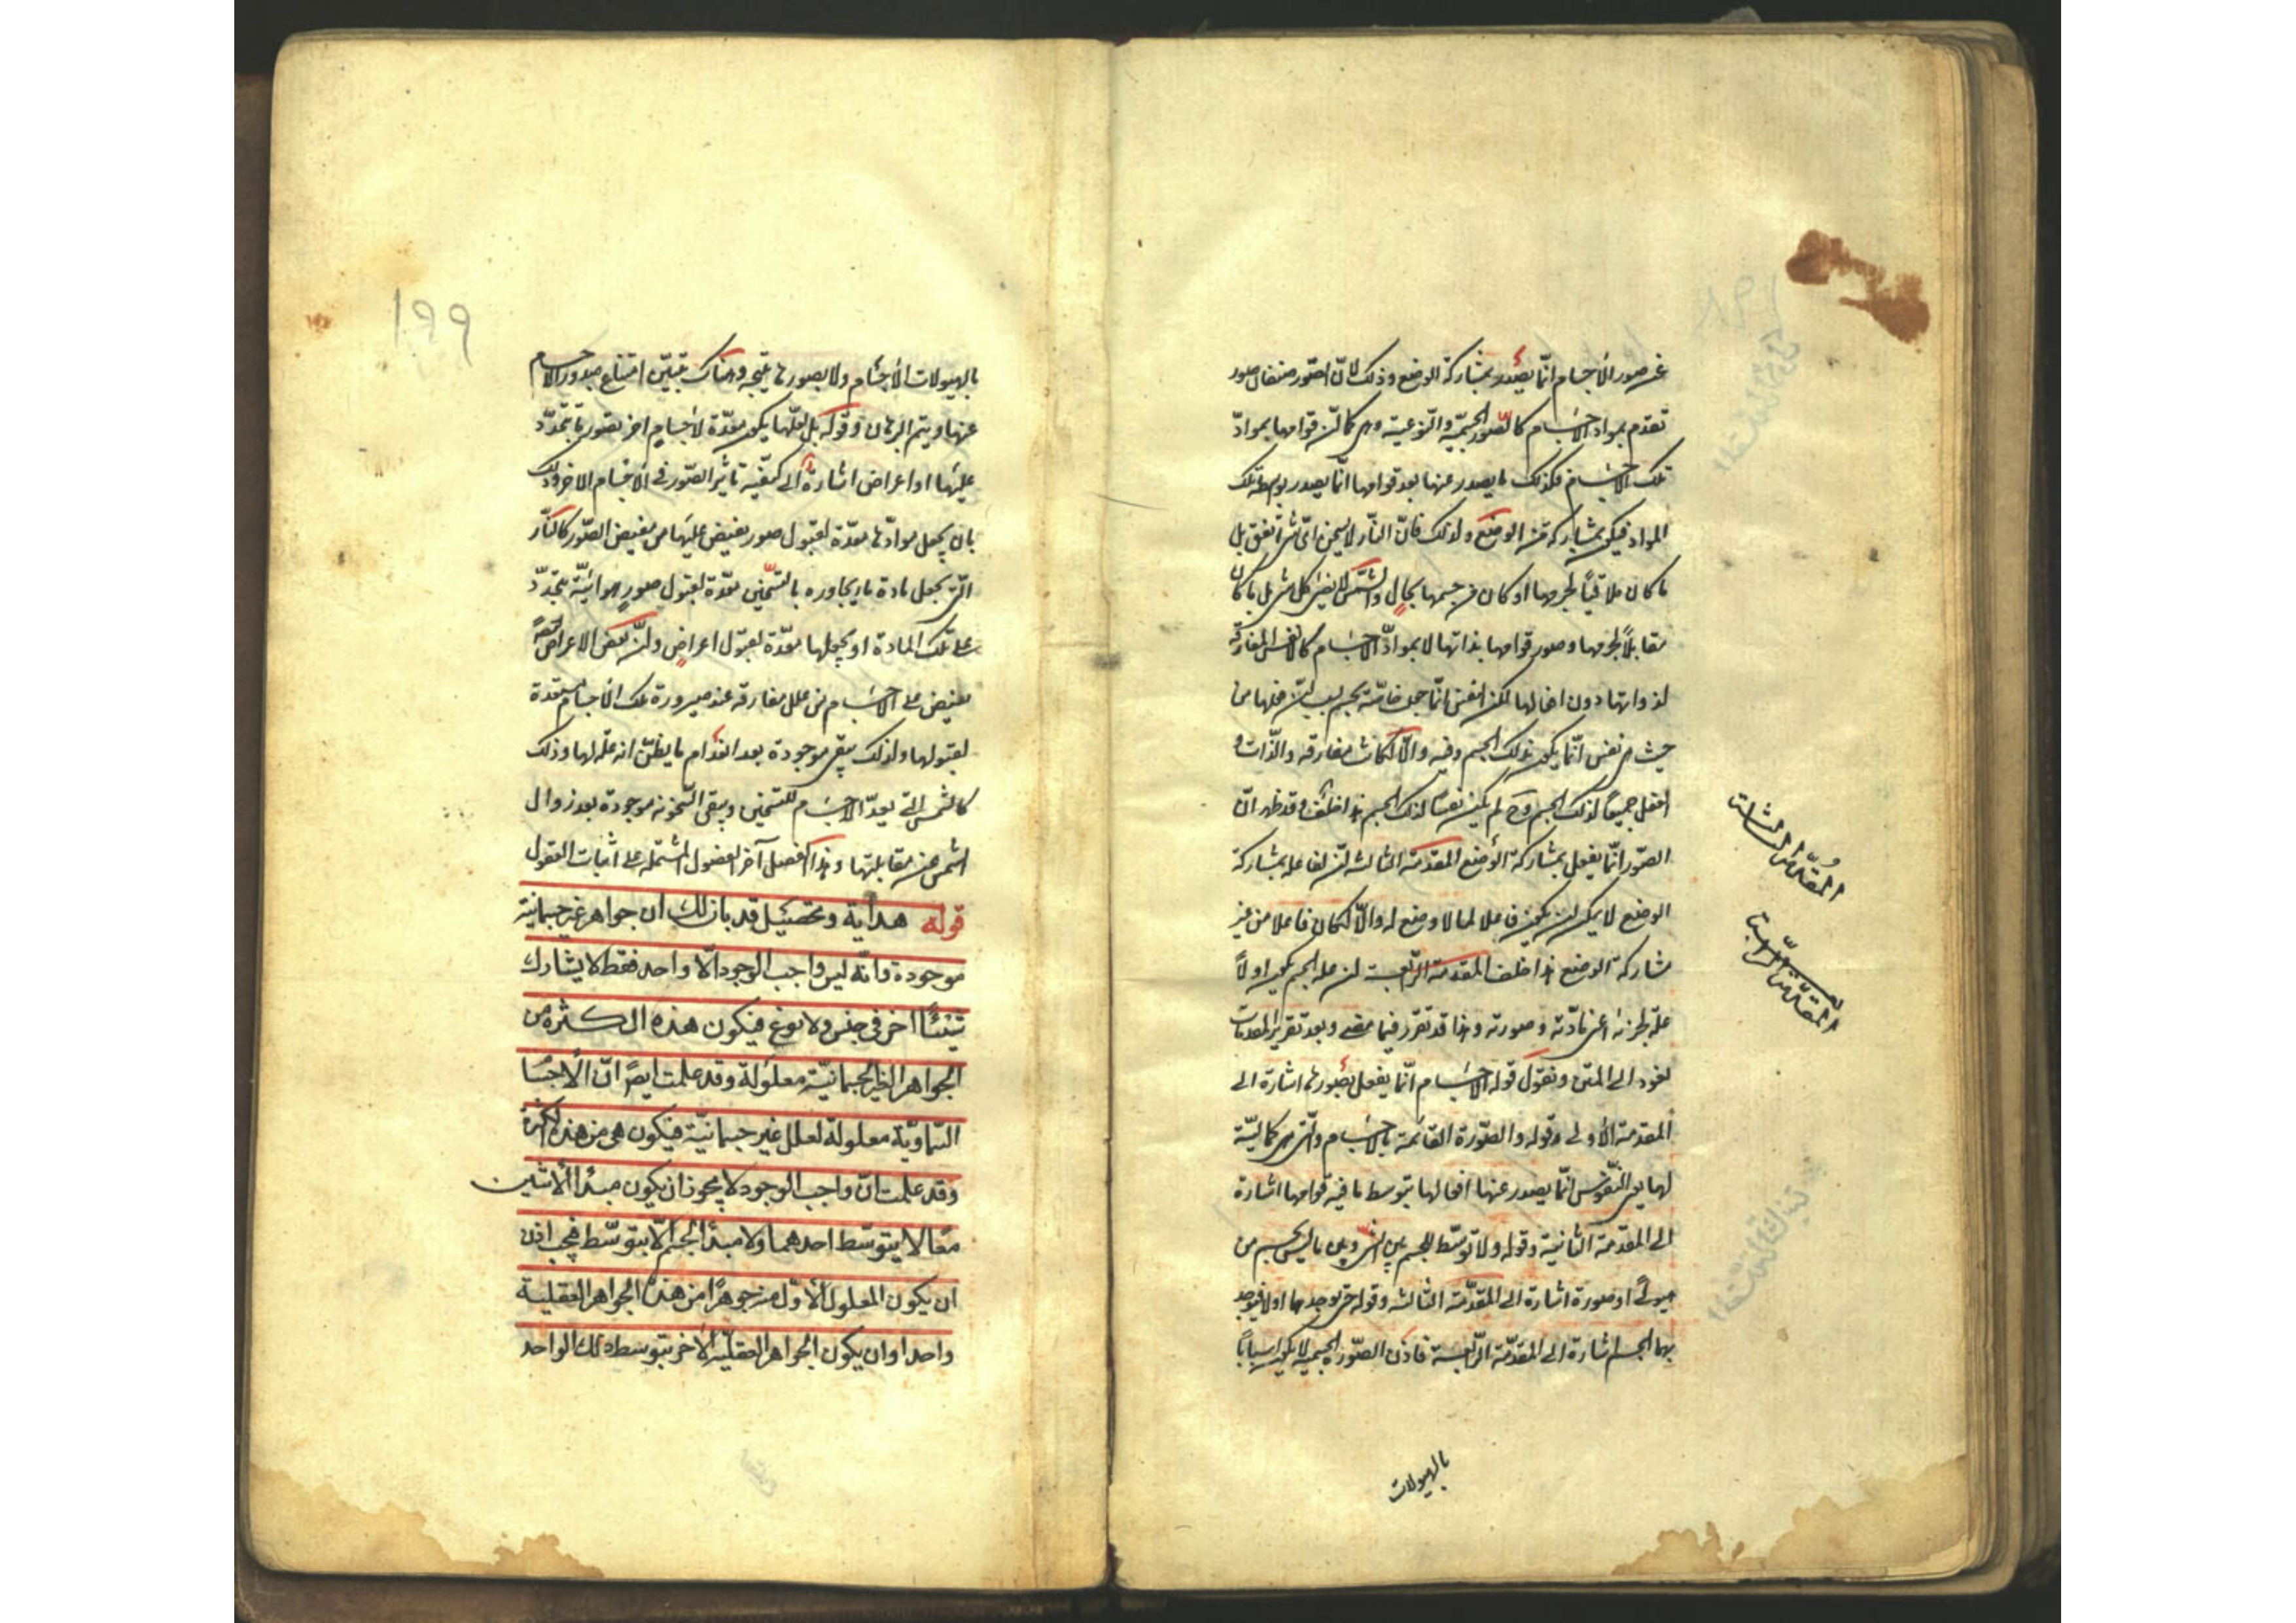 عن صور الأجسام انّما يصدر بمشاركة الوضع وذلك لانّ الصّور صنفان صور
تقوم بمواد الاجسام كالصّور الجسميّة والنّوعية وهى كما انّ قوامها بموادّ
تلك الاجسام فكذلك ما يصدر عنها بعد قوامها انّما يصدر بوسطة تلك
المواد فيكون بمشاركة من الوضع ولذلك فانّ النّار لا يسخن اىّ شئ اتفق بل
ما كان ملاقياً لجرمها او كان من جسمها بحال والشّمس لا يضئ كل شئ بل ما كان
مقابلاً لجرمها وصور قوامها بذاتها لا بموادّ الاجسام كالانفس المفارقة
لذواتها دون افعالها لكن النفس انّما جعلت خاصّة بجسم بسبب انّ فعلها من
حيث هى نفس انّما يكون بذلك الجسم وفيه والّا لكانت مفارقة والذّات و
الفعل جميعاً لذلك الجسم وح لم يكن نفساً لذلك الجسم هذا خلف وقد ظهر انّ
الصّور انّما يفعل بمشاركة الوضع المقدمة الثالثة انّ الفاعل بمشاركة
الوضع لا يمكن ان يكون فاعلا لما لا وضع له والّا لكان فاعلا من غير
مشاركة الوضع هذا خلف المقدمة الرّابعة ان علة الجسم يكون اولاً
علة لجزئيه اعنى مادّته وصورته وهذا قد تقرر فيما مضى وبعد تقرير المقدمات
نعود الى المتن ونقول قوله الاجسام انّما يفعل بصورها اشارة الى
المقدمة الأولى وقوله والصّورة القائمة بالاجسام والّتى هى كماليّة
لها يعنى النّفوس انّما يصدر عنها افعالها بتوسط ما فيه قوامها اشارة
الى المقدمة الثّانية وقوله ولا توسّط للجسم بين الشئ وبين ما ليس بجسم من
هيولى او صورة اشارة الى المقدّمة الثالثة وقوله حتى يوجدهما اولا فيوجد
بهما الجسم اشارة الى المقدّمة الرّابعة فاذن الصّورة الجسمية لا يكون اسباباً
بالهيولات
المقدّمة الثالثة
المقدّمة الرّابعة
١٩٩
بالهيولات الأجسام ولا بصورها نتيجة وهناك تبيّن امتناع صدور الاجسام
عنها ويتم البرهان وقوله بل لعلّها يكون معدّة لأجسام اخر بصور ما يتجدّد
عليها او اعراض اشارة الى كيفية تأثير الصّور فى الأجسام الاخر وذلك
بان يجعل موادّها معدّة لقبول صور تفيض عليها من مفيض الصّور كالنّار
الّتى يجعل مادة ما يجاوره بالتسخّين معدّة لقبول صور هوائيّة يتجدّد
على تلك المادة او يجعلها معدّة لقبول اعراض وانّ بعض الاعراض ايضاً
تفيض على الاجسام من علل مفارقه عند صيرورة تلك الاجسام مستعدة
لقبولها ولذلك يبقى موجودة بعد انعدام ما يظنّ انه علّة لها وذلك
كالشّمس الّتى يعدّ الاجسام للتسخين ويبقى السّخونة موجودة بعد زوال
الشمس عن مقابلتها وهذا الفصل آخر الفصول المشتملة على اثبات العقول
قوله هداية وتحصيل قد بان لك ان جواهر غير جسمانية
موجودة وانّه ليس واجب الوجود الّا واحد فقط لا يشارك
شيئاً اخر فى جنس ولا نوع فيكون هذه الكثرة من
الجواهر الغير الجسمانيّة معلولة وقد علمت ايضاً انّ الأجسا
السّماويّة معلولة لعلل غير جسمانيّة فيكون هى من هذه الكثرة
وقد علمت انّ واجب الوجود لا يجوز ان يكون مبدأ الاثنين
معاً الا يتوسّط احدهما ولا مبدأ لجسم الّا بتوسّط فيجب اذن
ان يكون المعلول الأوّل منه جوهراً من هذه الجواهر العقلية
واحدا وان يكون الجواهر العقليّة الاخر بتوسط ذلك الواحد